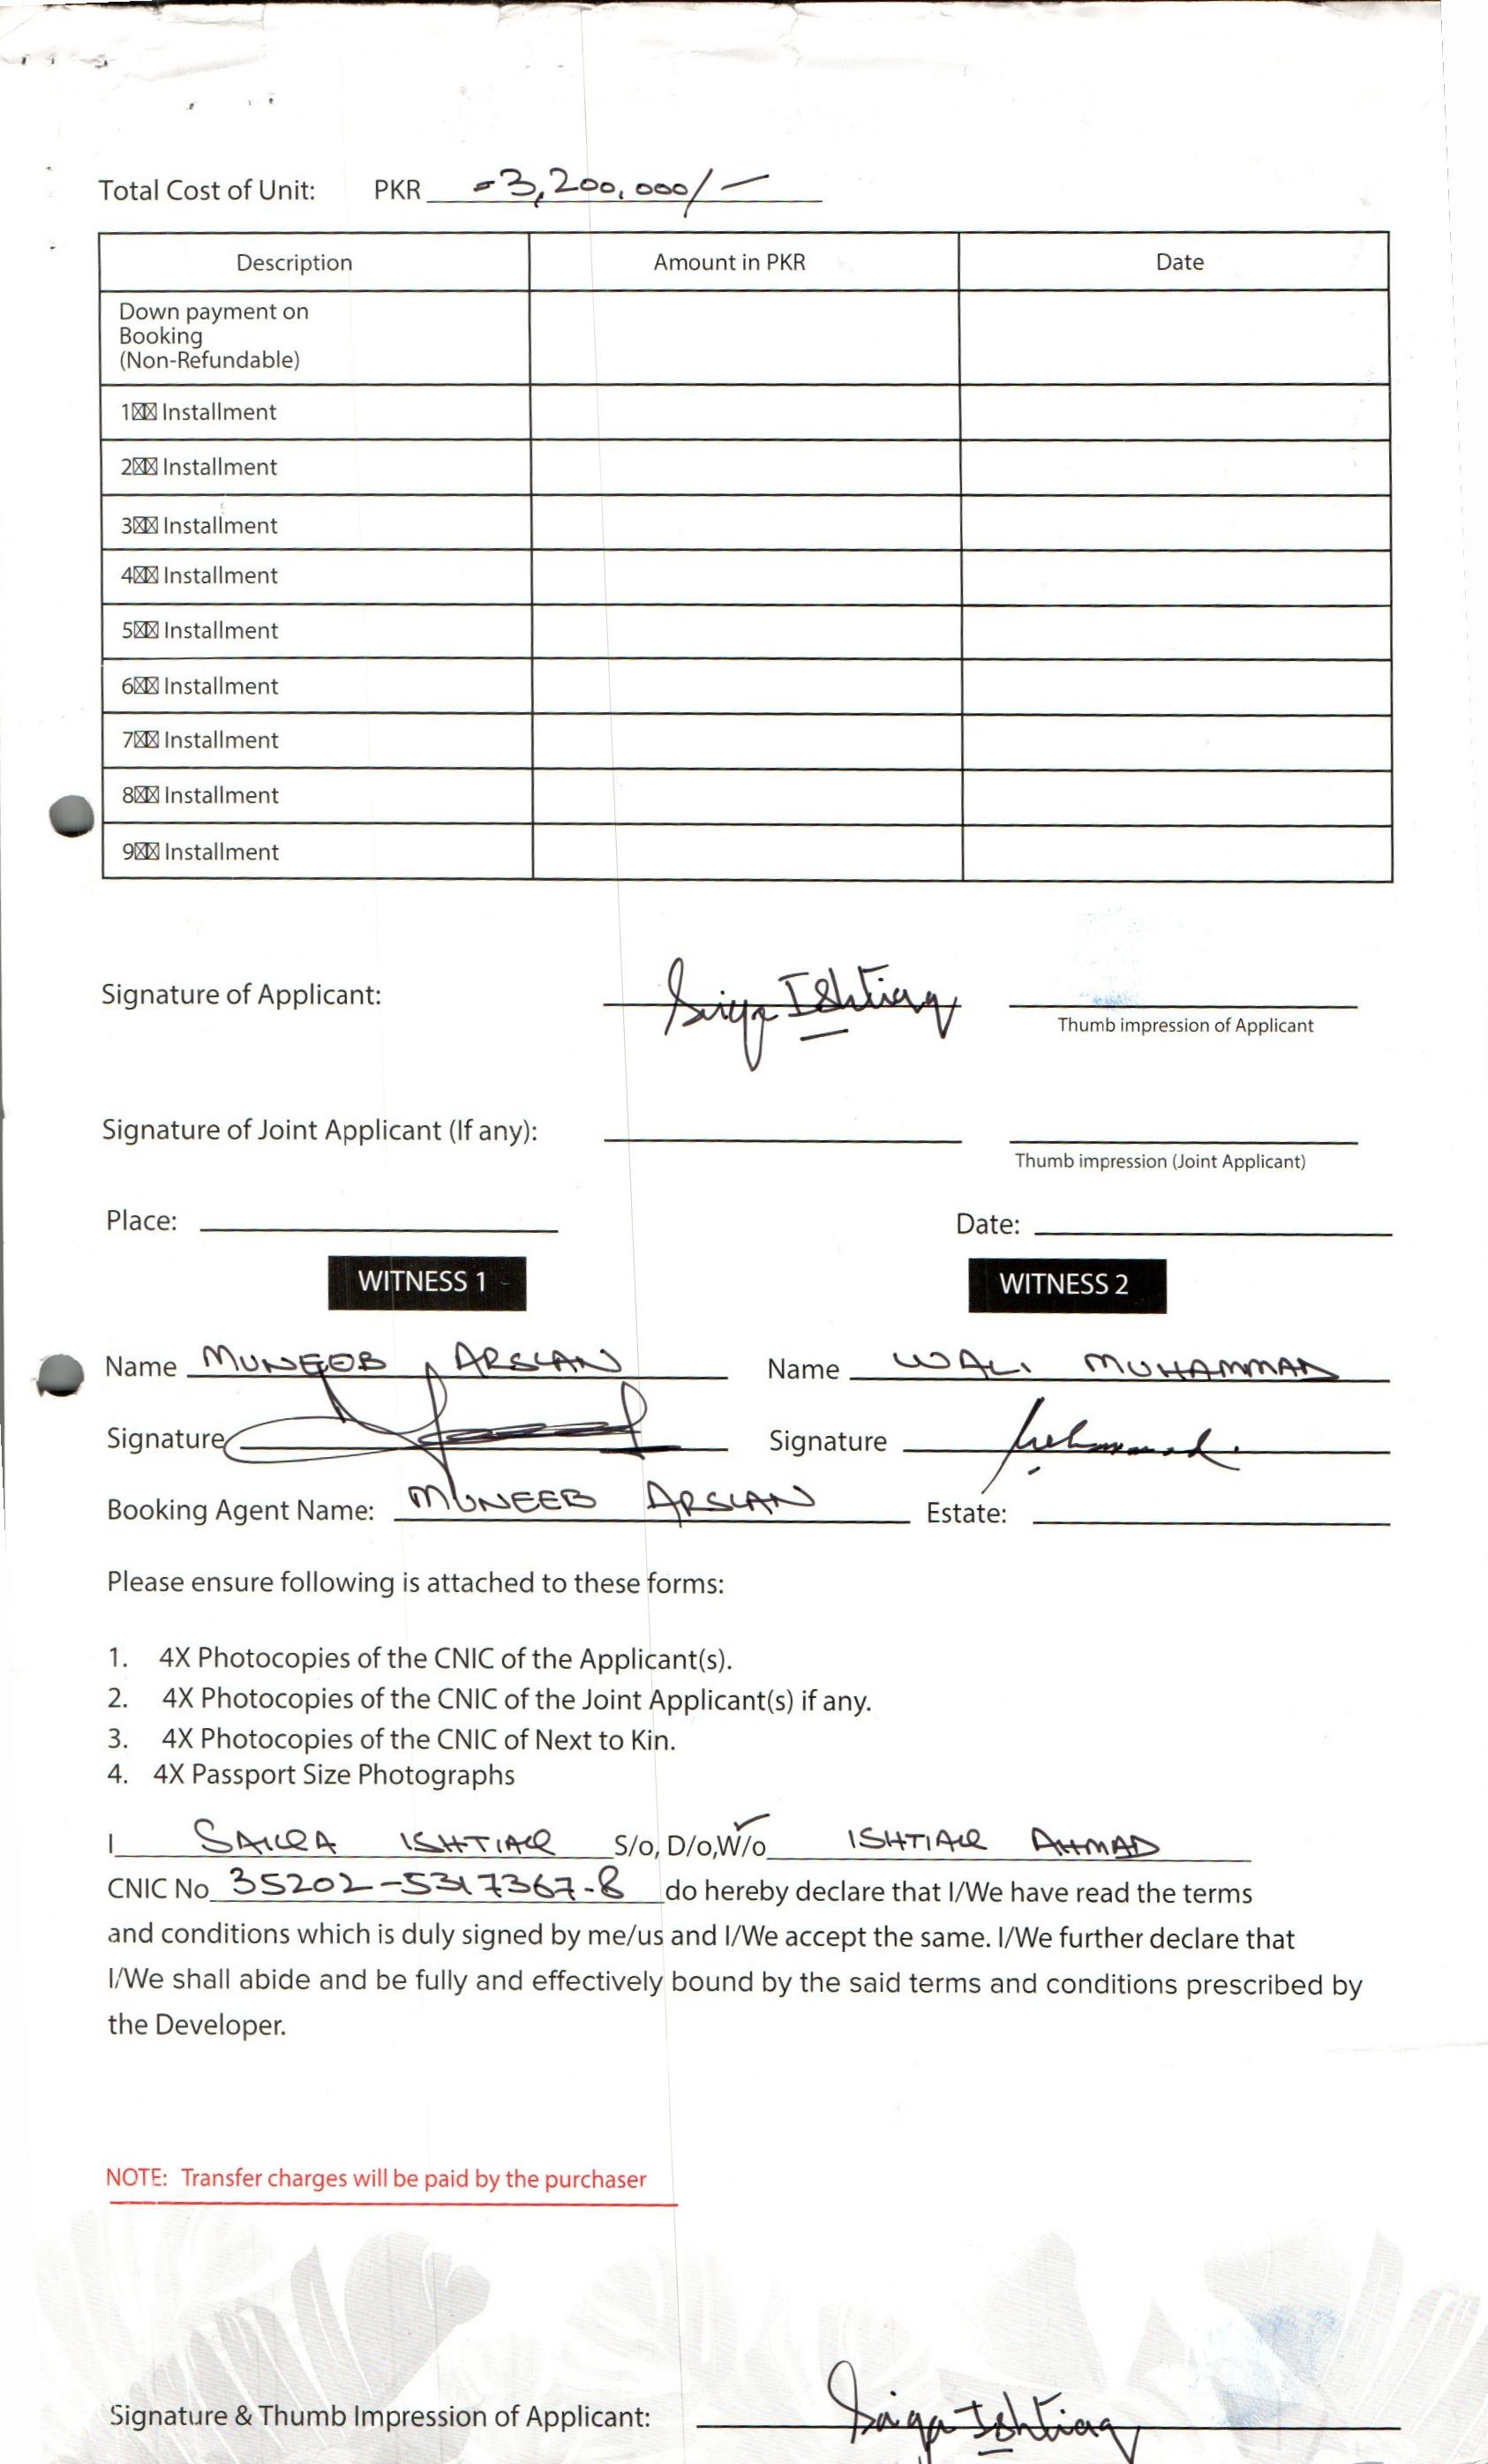 Total Cost of Unit: PKR =3,200,000/-
Description Amount in PKR Date
Down payment on
Booking
(Non-Refundable)
1 Installment
2 Installment
3 Installment
4 Installment
5 Installment
6 Installment
7 Installment
8 Installment
9 Installment
Signature of Applicant: Saiqa Ishtiaq
Thumb impression of Applicant
Signature of Joint Applicant (If any):
Thumb impression (Joint Applicant)
Place: Date:
WITNESS 1 WITNESS 2
Name MUNEEB ARSLAN Name WALI MUHAMMAD
Signature Signature
Booking Agent Name: MUNEEB ARSLAN Estate:
Please ensure following is attached to these forms:
1. 4X Photocopies of the CNIC of the Applicant(s).
2. 4X Photocopies of the CNIC of the Joint Applicant(s) if any.
3. 4X Photocopies of the CNIC of Next to Kin.
4. 4X Passport Size Photographs
I SAIQA ISHTIAQ S/o, D/o,W/o ISHTIAQ AHMAD
CNIC No 35202-5317367-8 do hereby declare that I/We have read the terms
and conditions which is duly signed by me/us and I/We accept the same. I/We further declare that
I/We shall abide and be fully and effectively bound by the said terms and conditions prescribed by
the Developer.
NOTE: Transfer charges will be paid by the purchaser
Signature & Thumb Impression of Applicant: Saiqa Ishtiaq